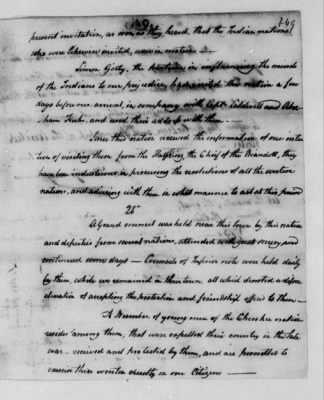 249
present invitation, as soon as they heard, that the Indian nations
who were likewise invited, were in motion —
Simon Girty, the in influencing the minds
of the Indians to our prejudice, had visited this nation a few
days before our arrival, in company with Capt. Caldwell and Abra
ham Kuhn, and used their address with them —
Since this nation received the information of our inten
tion of visiting them from the Halfking, the Chief of the Wyandotts, they
have been industrious in procuring the resolutions of all the western
nations, and advising with them in what manner to act at this period
25th
A Grand council was held near this town by this nation
and deputies from several nations, attended with great secrecy and
continued some days — Councils of Inferior note were held daily
by them, while we remained in their town all which denoted a
of accepting the protection and friendship offered to them —
A Number of young men of the Cherokee nation
reside among them, that were expelled their country in the late
war — received and protected by them, and are permitted to
exercise their wonton cruelty on our Citizens —